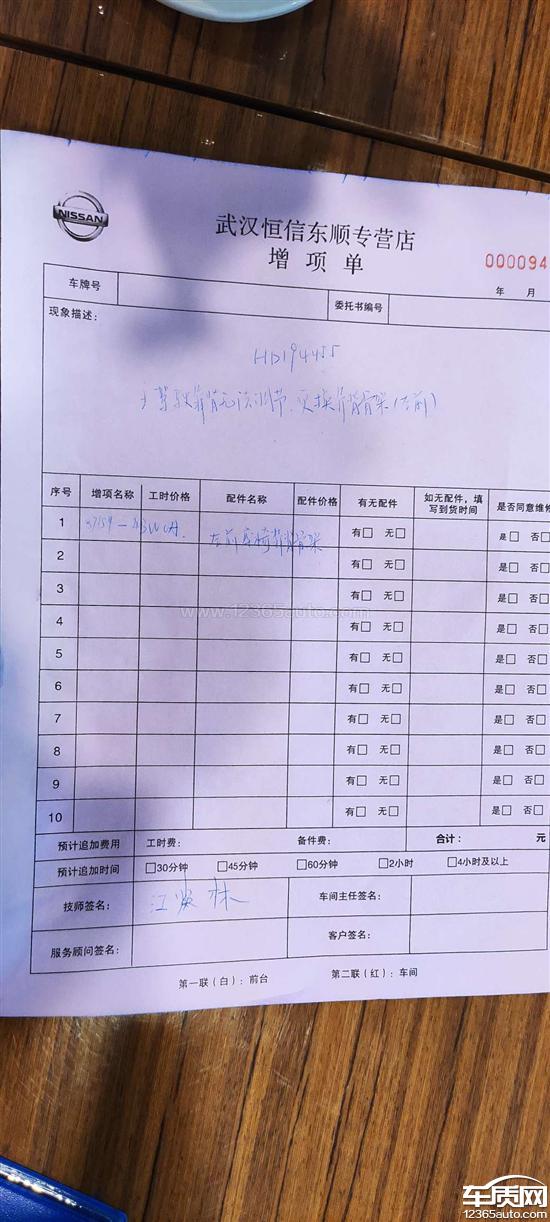 NISSAN
武汉恒信东顺专营店
增项单
000094
年 月
车牌号
委托书编号
现象描述：
HD194455
主驾驶靠背无法调节，更换靠背骨架（左前）
序号 增项名称 工时价格 配件名称 配件价格 有无配件 如无配件，填写到货时间 是否同意维修
1 左前座椅靠背骨架 有□ 无□ 是□ 否□
2 有□ 无□ 是□ 否□
3 有□ 无□ 是□ 否□
4 有□ 无□ 是□ 否□
5 有□ 无□ 是□ 否□
6 有□ 无□ 是□ 否□
7 有□ 无□ 是□ 否□
8 有□ 无□ 是□ 否□
9 有□ 无□ 是□ 否□
10 有□ 无□ 是□ 否□
预计追加费用 工时费： 备件费： 合计： 元
预计追加时间 □30分钟 □45分钟 □60分钟 □2小时 □4小时及以上
技师签名： 车间主任签名：
服务顾问签名： 客户签名：
第一联（白）：前台 第二联（红）：车间
www.12365auto.com
车质网
12365auto.com